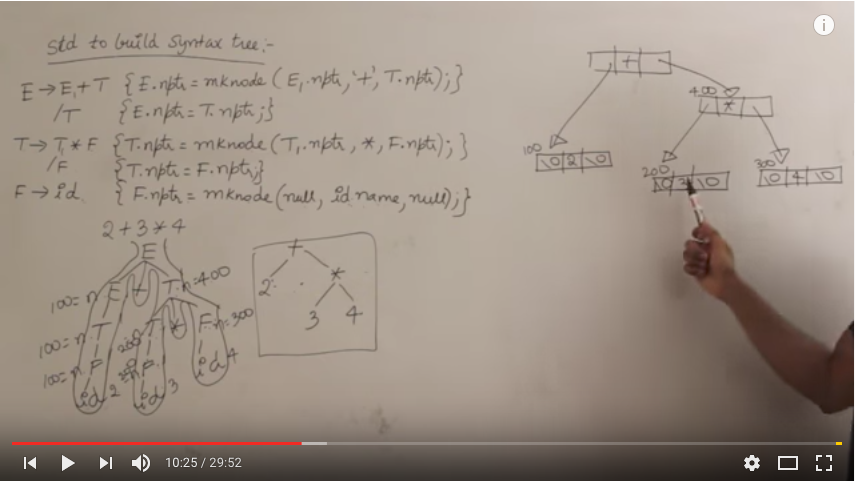 Std to build Syntax tree:-
E → E1 + T { E.nptr = mknode ( E1.nptr, '+', T.nptr); }
/T { E.nptr = T.nptr; }
T → T1 * F { T.nptr = mknode (T1.nptr, *, F.nptr); }
/F { T.nptr = F.nptr; }
F → id { F.nptr = mknode (null, id name, null); }
2 + 3 * 4
E
100 = n E + T.n = 400
100 = n T T * F.n = 300
200
100 = n F F id 4
id 2 id 3
+
2 *
3 4
+
400
*
100
\0 2 \0
200
\0 3 \0
300
\0 4 \0
i
10:25 / 29:52